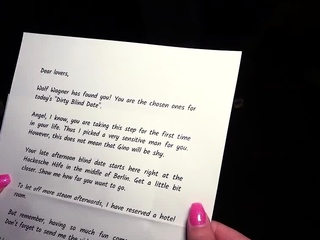 Dear lovers,
Wolf Wagner has found you! You are the chosen ones for
today's "Dirty Blind Date".
Angel, I know, you are taking this step for the first time
in your life. Thus I picked a very sensitive man for you.
However, this does not mean that Gino will be shy.
Your late afternoon blind date starts here right at the
Hackesche Höfe in the middle of Berlin. Get a little bit
closer. Show me how far you want to go.
To let off more steam afterwards, I have reserved a hotel
room.
But remember, having so much fun
Don't forget to send me the